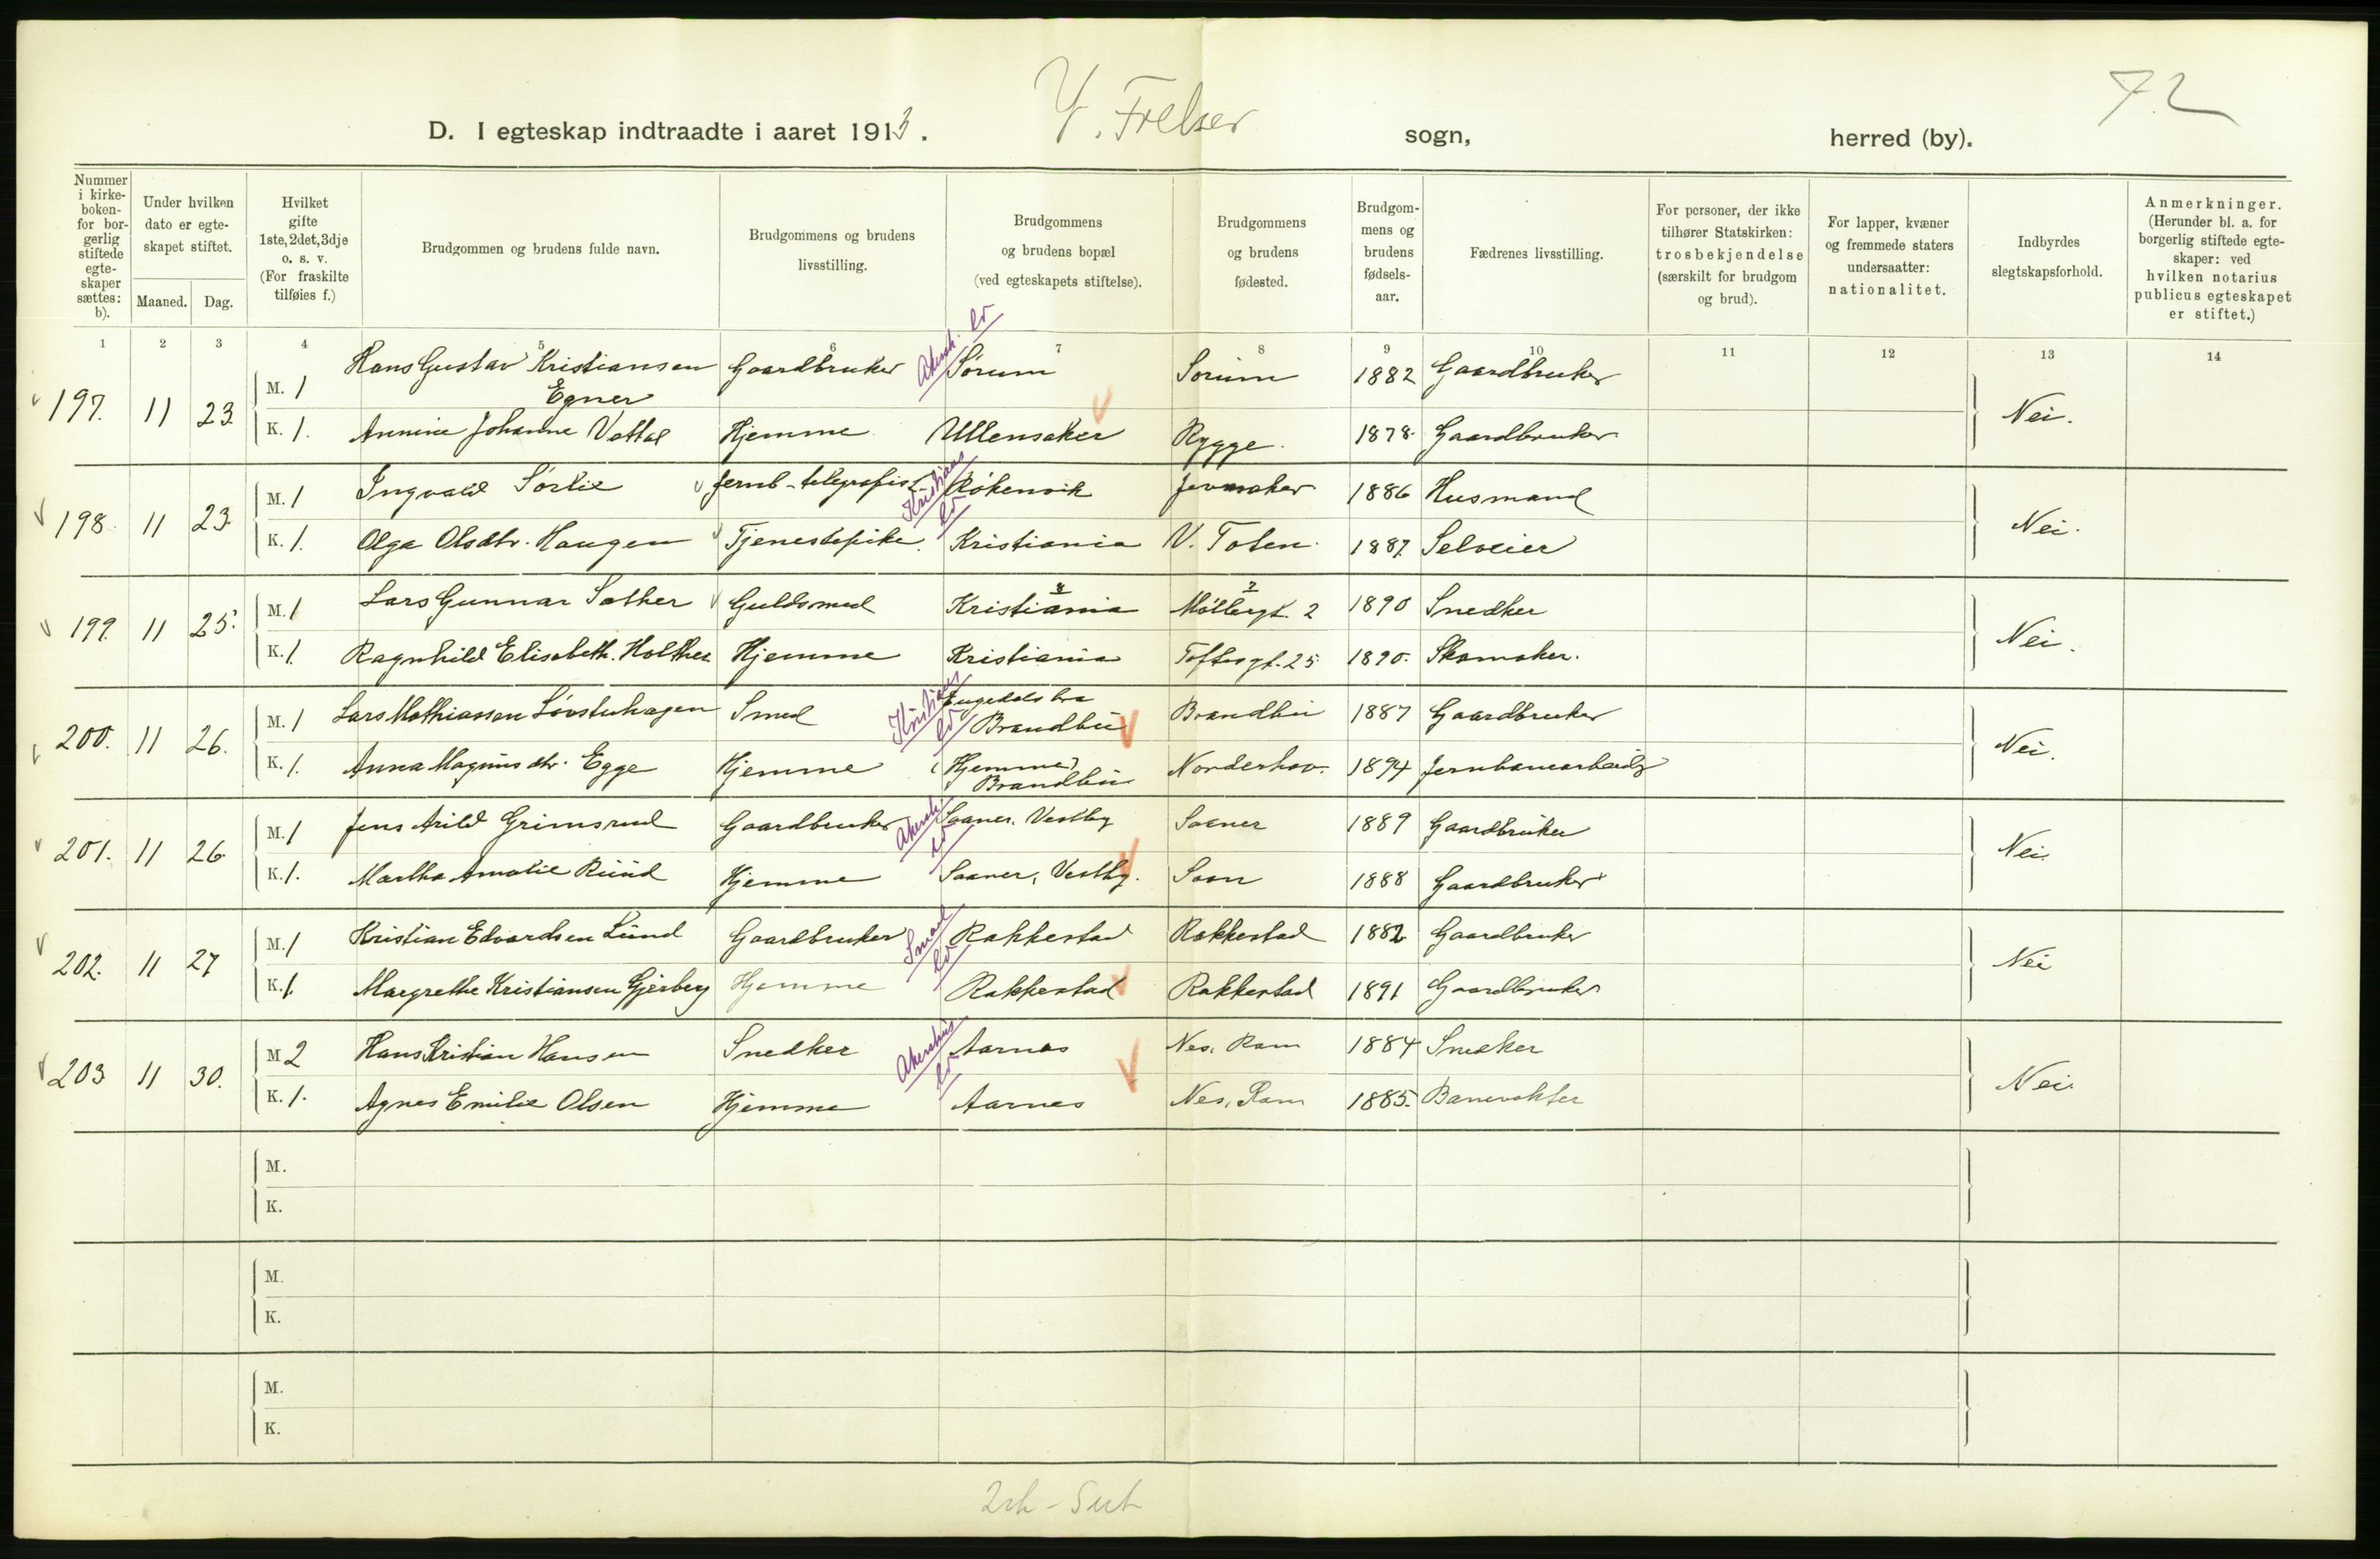 72
D. I egteskap indtraadte i aaret 1913. V. Frelser sogn, herred (by).
Nummer i kirkeboken- for borgerlig stiftede egteskaper sættes: b).
Under hvilken dato er egteskapet stiftet.
Maaned. Dag.
Hvilket gifte 1ste, 2det, 3dje o. s. v. (For fraskilte tilføies f.)
Brudgommen og brudens fulde navn.
Brudgommens og brudens livsstilling.
Brudgommens og brudens bopæl (ved egteskapets stiftelse).
Brudgommens og brudens fødested.
Brudgommens og brudens fødselsaar.
Fædrenes livsstilling.
For personer, der ikke tilhører Statskirken: trosbekjendelse (særskilt for brudgom og brud).
For lapper, kvæner og fremmede staters undersaatter: nationalitet.
Indbyrdes slegtskapsforhold.
Anmerkninger. (Herunder bl. a. for borgerlig stiftede egteskaper: ved hvilken notarius publicus egteskapet er stiftet.)
1 2 3 4 5 6 7 8 9 10 11 12 13 14
197. 11 23 M. 1 Hans Gustav Kristiansen Egner Gaardbruker Akersh. Sørum Sørum 1882 Gaardbruker Nei.
K. 1. Annine Johanne Vettal Hjemme Ullensaker Rygge. 1878. Gaardbruker
198. 11 23. M. 1 Ingvald Sørlie Jernb-telegrafist Kristians Røkenvik Jevnaker 1886 Husmand Nei.
K. 1. Olga Olsdtr. Haugen Tjenestepike. Kristiania V. Toten. 1887. Selveier
199. 11 25. M. 1 Lars Gunnar Sather Guldsmed Kristiania Møllergt. 2 1890 Snedker Nei.
K. 1. Ragnhild Elisabeth. Holther Hjemme Kristiania Toftesgt. 25 1890. Skomaker.
200. 11 26. M. 1 Lars Mathiassen Løvstuhagen Smed Kristians Brandbu Brandbu 1887 Gaardbruker Nei.
K. 1. Anna Magnusdtr. Egge Hjemme (Hjemme) Brandbu Norderhov. 1894 Jernbanearbeider
201. 11 26. M. 1 Jens Arild Grimsrud Gaardbruker Akersh. Saaner. Vestby Saaner 1889 Gaardbruker Nei.
K. 1. Martha Amalie Ruud Hjemme Saaner, Vestby. Soon 1888 Gaardbruker
202. 11 27 M. 1 Kristian Edvardsen Lund Gaardbruker Smaal Rakkestad Rakkestad 1882 Gaardbruker Nei
K. 1. Margrethe Kristiansen Gjerberg Hjemme Rakkestad Rakkestad 1891 Gaardbruker
203 11 30. M 2 Hans Kristian Hansen Snedker Akershus Aarnes Nes, Rom 1884 Snedker Nei
K. 1. Agnes Emilie Olsen Hjemme Aarnes Nes, Rom 1885. Banevokter
M.
K.
M.
K.
M.
K.